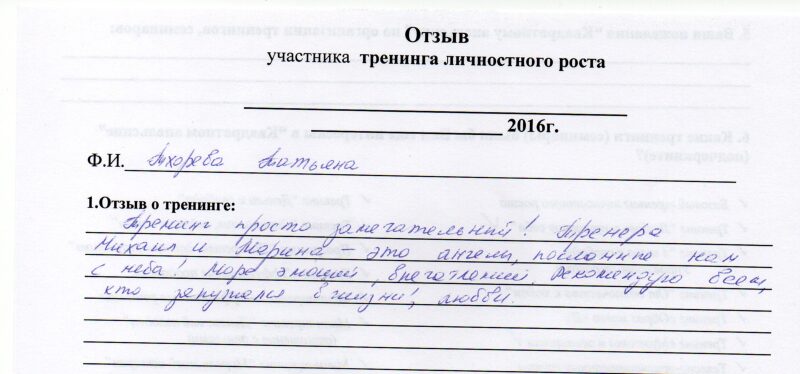 Отзыв
участника тренинга личностного роста
2016г.
Ф.И. Тхорева Татьяна
1.Отзыв о тренинге:
Тренинг просто замечательный! Тренера
Михаил и Марина – это ангелы, посланные нам
с неба! Море эмоций, впечатлений. Рекомендую всем,
кто запутался в жизни, любви.